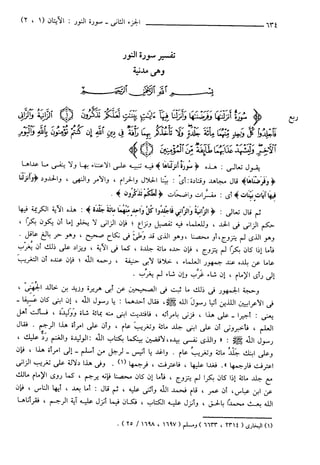 ٦٣٤
الجزء الثانى - سورة النور : الآيتان ( ١ ، ٢ )
تفسير سورة النور
وهى مدنية
بسم الله الرحمن الرحيم
ربع
﴿ سورة أنزلناها وفرضناها وأنزلنا فيها آيات بينات لعلكم تذكرون ① الزانية والزاني
فاجلدوا كل واحد منهما مائة جلدة ولا تأخذكم بهما رأفة في دين الله إن كنتم تؤمنون بالله واليوم
الآخر وليشهد عذابهما طائفة من المؤمنين ② ﴾
يقول تعالى : هذه ﴿ سورة أنزلناها ﴾ فيه تنبيه على الاعتناء بها ولا ينفى ما عداها
﴿ وفرضناها ﴾ قال مجاهد وقتادة : أى : بينا الحلال والحرام ، والأمر والنهى ، والحدود ﴿ وأنزلنا
فيها آيات بينات ﴾ أى : مفسرات واضحات ﴿ لعلكم تذكرون ﴾ .
ثم قال تعالى : ﴿ الزانية والزاني فاجلدوا كل واحد منهما مائة جلدة ﴾ : هذه الآية الكريمة فيها
حكم الزانى فى الحد ، وللعلماء فيه تفصيل ونزاع ؛ فإن الزانى لا يخلو إما أن يكون بكراً ،
وهو الذى لم يتزوج، أو محصنا ، وهو الذى قد وطئ فى نكاح صحيح ، وهو حر بالغ عاقل .
فأما إذا كان بكراً لم يتزوج ، فإن حده مائة جلدة ، كما فى الآية ، ويزاد على ذلك أن يُغرّب
عاما عن بلده عند جمهور العلماء ، خلافا لأبى حنيفة ، رحمه الله ؛ فإن عنده أن التغريب
إلى رأى الإمام ، إن شاء غرّب وإن شاء لم يغرّب .
وحجة الجمهور فى ذلك ما ثبت فى الصحيحين عن أبى هريرة وزيد بن خالد الجُهَنىّ ،
فى الأعرابيين اللذين أتيا رسول الله ﷺ، فقال أحدهما : يا رسول الله ، إن ابنى كان عَسِيفا -
يعنى : أجيرا - على هذا ، فزنى بامرأته ، فافتديت ابنى منه بمائة شاة ووَليدَة ، فسألت أهل
العلم ، فأخبرونى أن على ابنى جلد مائة وتغريبَ عام ، وأن على امرأة هذا الرجم . فقال
رسول الله ﷺ : « والذى نفسى بيده لأقضين بينكما بكتاب الله : الوليدة والغنم رَدٌّ عليك ،
وعلى ابنك جَلْدُ مائة وتغريبُ عام . واغد يا أنيس - لرجل من أسلم - إلى امرأة هذا ، فإن
اعترفت فارجمها » . فغدا عليها ، فاعترفت ، فرجمها (١) . وفى هذا دلالة على تغريب الزانى
مع جلد مائة إذا كان بكرا لم يتزوج ، فأما إن كان محصنا فإنه يرجم ، كما روى الإمام مالك
عن ابن عباس، أن عمر ، قام فحمد الله وأثنى عليه ، ثم قال : أما بعد ، أيها الناس ، فإن
الله بعث محمداً بالحق ، وأنزل عليه الكتاب ، فكان فيما أنزل عليه آية الرجم ، فقرأناها
(١) البخارى ( ٢٣١٤ ، ٦٦٣٣ ) ومسلم ( ١٦٩٧ ، ١٦٩٨ / ٢٥ ) .